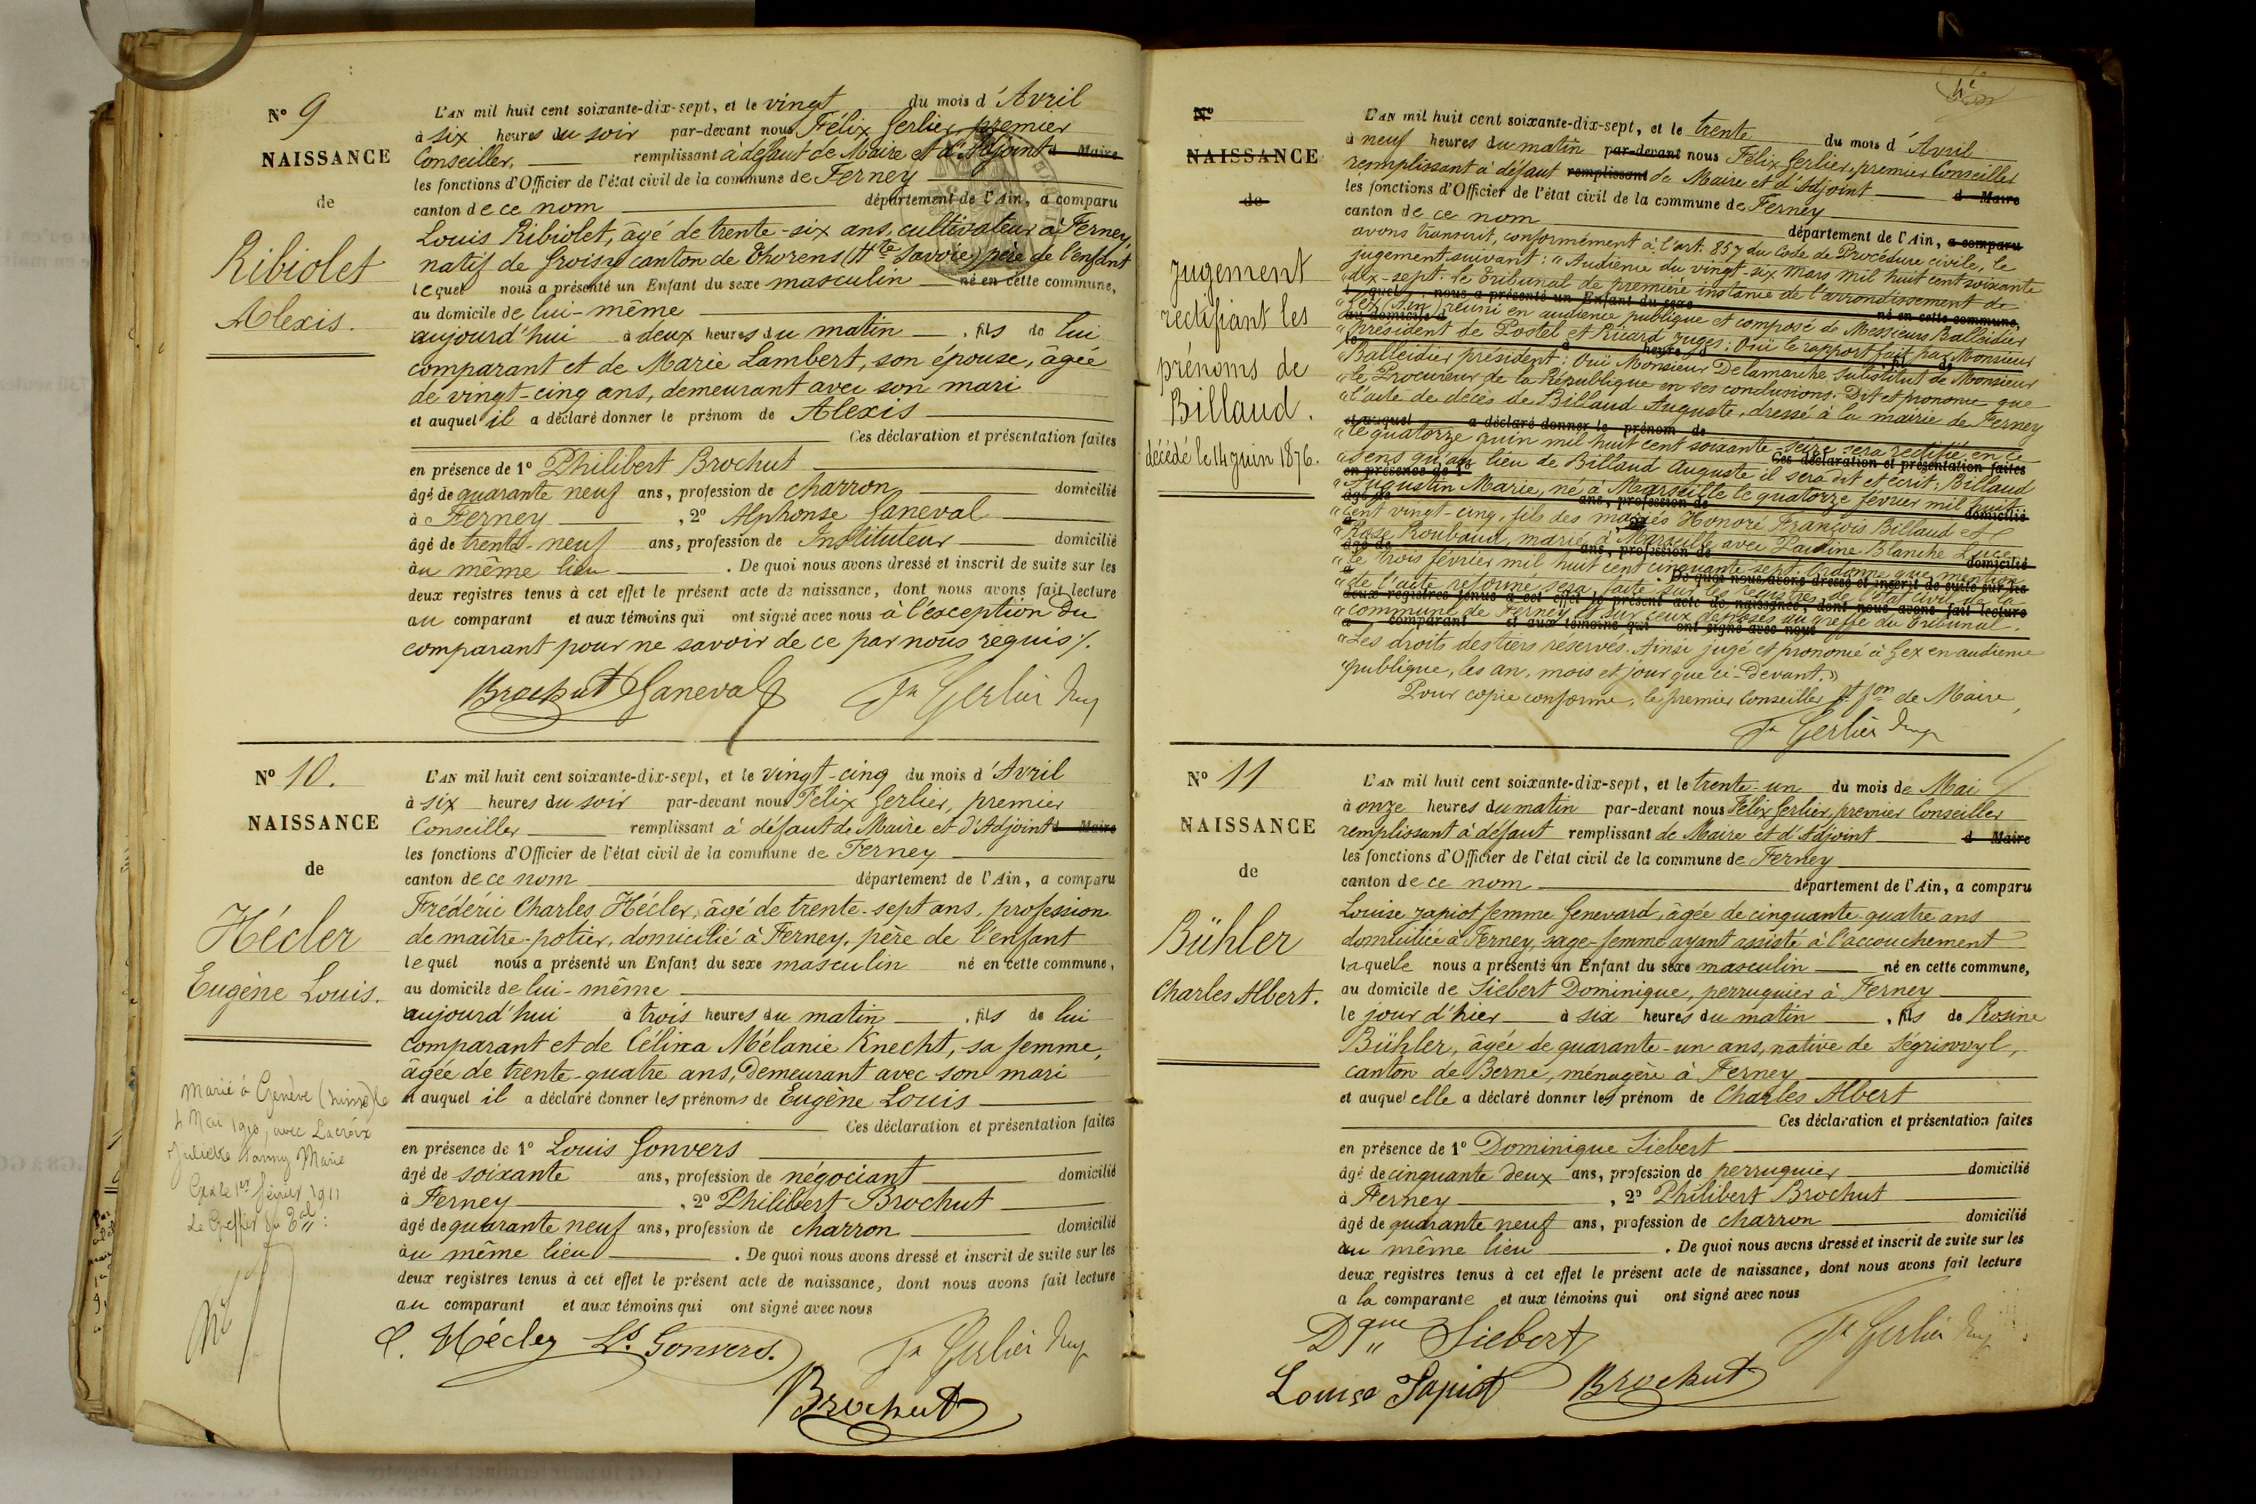 N° 9
NAISSANCE
de
Ribiolet
Alexis.
L'AN mil huit cent soixante-dix-sept, et le vingt du mois d'Avril
à six heures du soir par-devant nous Félix Gerlier, premier
Conseiller, remplissant à défaut de Maire et d'Adjoint d Maire
les fonctions d'Officier de l'état civil de la commune de Ferney
canton de ce nom département de l'Ain, a comparu
Louis Ribiolet, âgé de trente-six ans, cultivateur à Ferney,
natif de Groisy canton de Thorens (Hte Savoie) père de l'enfant
lequel nous a présenté un Enfant du sexe masculin né en cette commune,
au domicile de lui-même
aujourd'hui à deux heures du matin, fils de lui
comparant et de Marie Lambert, son épouse, âgée
de vingt-cinq ans, demeurant avec son mari
et auquel il a déclaré donner le prénom de Alexis
Ces déclaration et présentation faites
en présence de 1° Philibert Brochut
âgé de quarante neuf ans, profession de charron domicilié
à Ferney, 2° Alphonse Ganeval
âgé de trente-neuf ans, profession de Instituteur domicilié
au même lieu. De quoi nous avons dressé et inscrit de suite sur les
deux registres tenus à cet effet le présent acte de naissance, dont nous avons fait lecture
au comparant et aux témoins qui ont signé avec nous à l'exception du
comparant pour ne savoir de ce par nous requis ./.
Brochut Ganeval Fx Gerlier
N° 10.
NAISSANCE
de
Hécler
Eugène Louis.
Marié à Genève (Suisse) le
4 Mai 1910, avec Lacroix
Juliette Fanny Marie
Gex le 1er février 1911
Le Greffier du Tal:
L'AN mil huit cent soixante-dix-sept, et le vingt-cinq du mois d'Avril
à six heures du soir par-devant nous Félix Gerlier, premier
Conseiller remplissant à défaut de Maire et d'Adjoint d Maire
les fonctions d'Officier de l'état civil de la commune de Ferney
canton de ce nom département de l'Ain, a comparu
Frédéric Charles Hécler, âgé de trente-sept ans, profession
de maître-potier, domicilié à Ferney, père de l'enfant
lequel nous a présenté un Enfant du sexe masculin né en cette commune,
au domicile de lui-même
aujourd'hui à trois heures du matin, fils de lui
comparant et de Célina Mélanie Knecht, sa femme,
âgée de trente-quatre ans, demeurant avec son mari
et auquel il a déclaré donner les prénoms de Eugène Louis
Ces déclaration et présentation faites
en présence de 1° Louis Gonvers
âgé de soixante ans, profession de négociant domicilié
à Ferney, 2° Philibert Brochut
âgé de quarante neuf ans, profession de charron domicilié
au même lieu. De quoi nous avons dressé et inscrit de suite sur les
deux registres tenus à cet effet le présent acte de naissance, dont nous avons fait lecture
au comparant et aux témoins qui ont signé avec nous
C. Hécler Ls Gonvers. Fx Gerlier
Brochut
N°
NAISSANCE
de
Jugement
rectifiant les
prénoms de
Billaud.
décédé le 14 juin 1876.
L'AN mil huit cent soixante-dix-sept, et le trente du mois d'Avril
à neuf heures du matin par-devant nous Félix Gerlier, premier Conseiller
remplissant à défaut remplissant de Maire et d'Adjoint d Maire
les fonctions d'Officier de l'état civil de la commune de Ferney
canton de ce nom département de l'Ain, a comparu
avons transcrit, conformément à l'art. 857 du Code de Procédure civile, le
jugement suivant : "Audience du vingt-six mars mil huit cent soixante
"dix-sept. Le Tribunal de première instance de l'arrondissement de
l quel nous a présenté un Enfant du sexe né en cette commune,
"Gex (Ain) réuni en audience publique et composé de Messieurs Balleidier
au domicile d
"président de Postel et Ricard juges; Ouï le rapport fait par Monsieur
le à heure d , fil de
"Balleidier président; Ouï Monsieur Delamarche Substitut de Monsieur
"le Procureur de la République en ses conclusions. Dit et prononce que
"l'acte de décès de Billaud Auguste, dressé à la mairie de Ferney
et auquel a déclaré donner le prénom de
"le quatorze juin mil huit cent soixante-seize sera rectifié en ce
Ces déclaration et présentation faites
"sens qu'au lieu de Billaud Auguste il sera dit et écrit : Billaud
en présence de 1°
"Augustin Marie, né à Marseille le quatorze février mil huit
âgé de ans, profession de domicilié
"cent vingt-cinq, fils des mariés Honoré François Billaud et
"Rose Roubaud, marié à Marseille avec Pauline Blanche Luce
âgé de ans, profession de domicilié
"le trois février mil huit cent cinquante sept. Ordonne que mention
. De quoi nous avons dressé et inscrit de suite sur les
"de l'acte réformé sera faite sur les registres de l'état civil de la
deux registres tenus à cet effet le présent acte de naissance, dont nous avons fait lecture
"commune de Ferney et sur ceux déposés au greffe du Tribunal.
a comparant et aux témoins qui ont signé avec nous
"Les droits des tiers réservés. Ainsi jugé et prononcé à Gex en audience
"publique, les an, mois et jour que ci-devant."
Pour copie conforme, le premier Conseiller ft fon de Maire,
Fx Gerlier
N° 11
NAISSANCE
de
Bühler
Charles Albert.
L'AN mil huit cent soixante-dix-sept, et le trente-un du mois de Mai
à onze heures du matin par-devant nous Félix Gerlier, premier Conseiller
remplissant à défaut remplissant de Maire et d'Adjoint d Maire
les fonctions d'Officier de l'état civil de la commune de Ferney
canton de ce nom département de l'Ain, a comparu
Louise Japiot femme Genevard, âgée de cinquante quatre ans
domiciliée à Ferney, sage-femme ayant assisté à l'accouchement
laquelle nous a présenté un Enfant du sexe masculin né en cette commune,
au domicile de Siebert Dominique, perruquier à Ferney
le jour d'hier à six heures du matin, fils de Rosine
Bühler, âgée de quarante-un ans, native de Ségrisvvyl,
canton de Berne, ménagère à Ferney
et auquel elle a déclaré donner les prénom de Charles Albert
Ces déclaration et présentation faites
en présence de 1° Dominique Siebert
âgé de cinquante deux ans, profession de perruquier domicilié
à Ferney, 2° Philibert Brochut
âgé de quarante neuf ans, profession de charron domicilié
au même lieu. De quoi nous avons dressé et inscrit de suite sur les
deux registres tenus à cet effet le présent acte de naissance, dont nous avons fait lecture
a la comparante et aux témoins qui ont signé avec nous
Dque Siebert Fx Gerlier
Louise Japiot Brochut